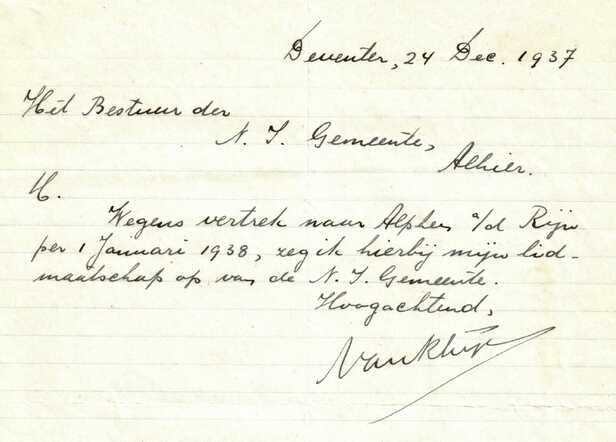 Deventer, 24 Dec. 1937
Het Bestuur der
N. I. Gemeente,
Alhier.
M.
Wegens vertrek naar Alphen a/d Rijn
per 1 Januari 1938, zeg ik hierbij mijn lid-
maatschap op van de N. I. Gemeente.
Hoogachtend,